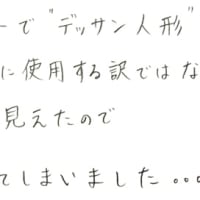 ーで"デッサン人形"
に使用する訳ではな
見えたので
てしまいました...